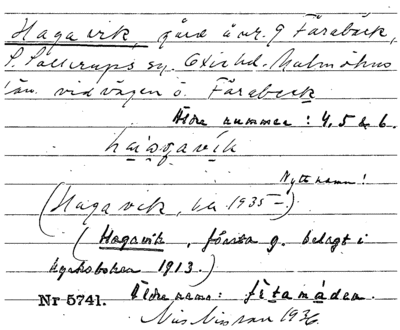 Hagavik, gård å nr. 9 Fårabäck,
S. Sallerups sn. Oxie hd. Malmöhus
län. vid vägen ö. Fårabeck
Äldre nummer: 4, 5 & 6.
haʒgavik
Nytt namn!
(Hagavik, 1935-)
(Hagavik, första g. belagt i
kyrkoboken 1913.)
Nr 5741. Äldre namn: fetamaden.
Nils Nilsson 1936.